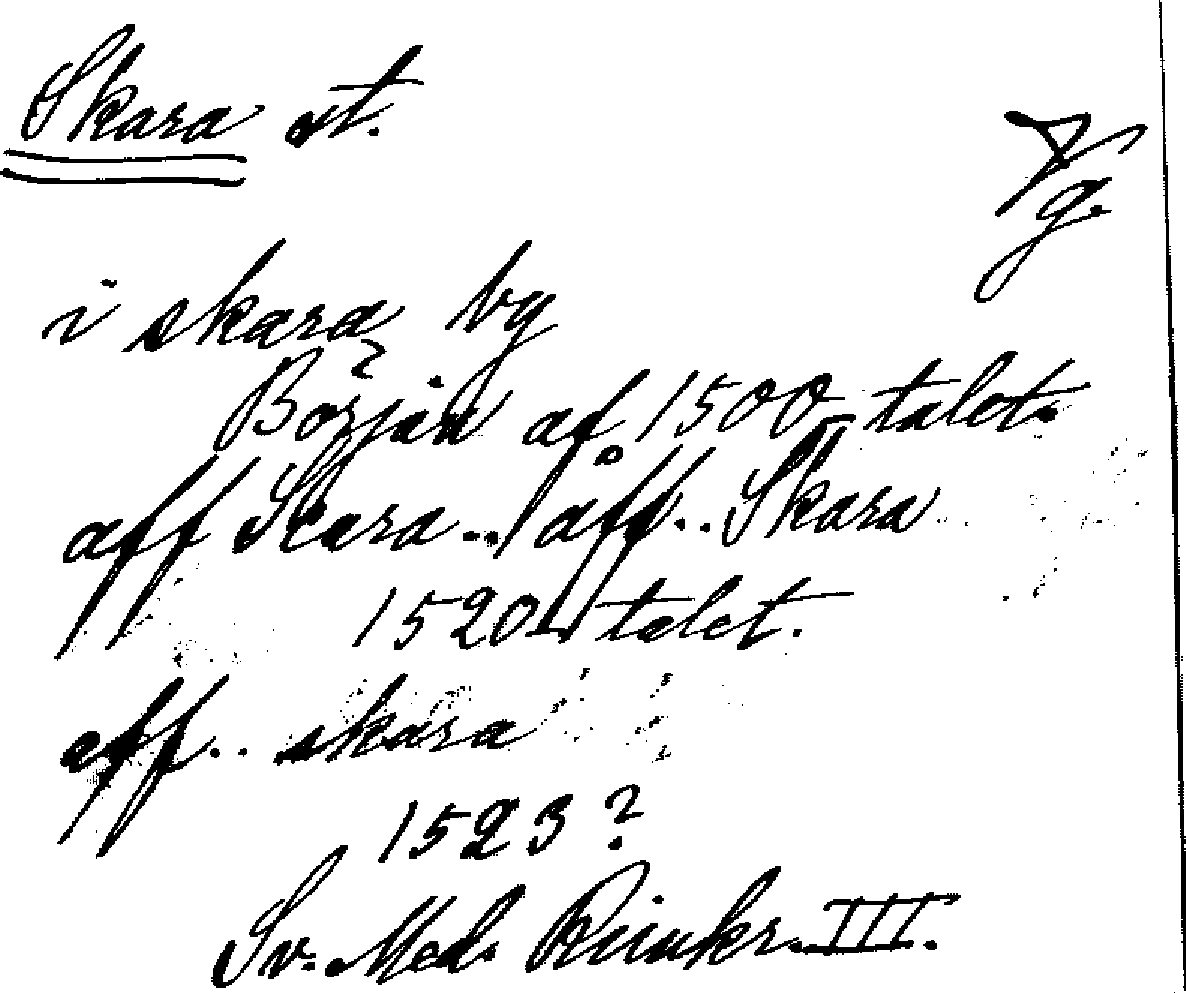 Skara st.
Vg.
i skara by
Början af 1500-talet.
aff Scara../åff.. Skara
1520-talet.
aff.. skara
1523?
Sv. Med. Rimkr. III.